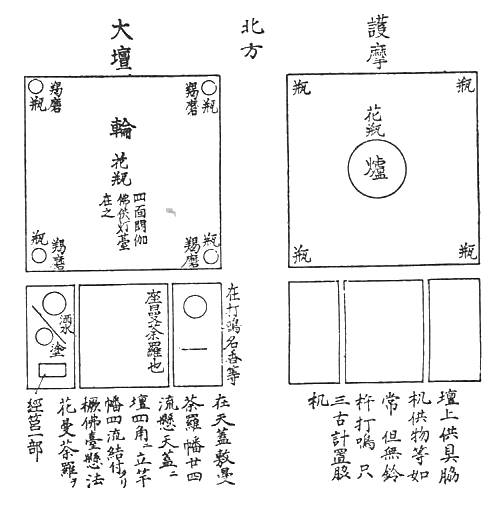 北方
護摩
瓶
瓶
花瓶
爐
瓶
瓶
壇上供具脇
机供物等如
常但無鈴
杵打鳴只
三古計置脇
机
大壇
羯磨
瓶
羯磨
瓶
輪
花瓶
四面閼伽
佛供灯臺
在之
瓶
羯磨
羯磨
瓶
在打鳴名香等
座曼荼羅也
洒水
塗
在天蓋敷曼
荼羅幡廿四
流懸天蓋ニ
壇四角ニ立竿
幡四流結付
橛佛臺懸法
花曼荼羅ヲ
經筥一部